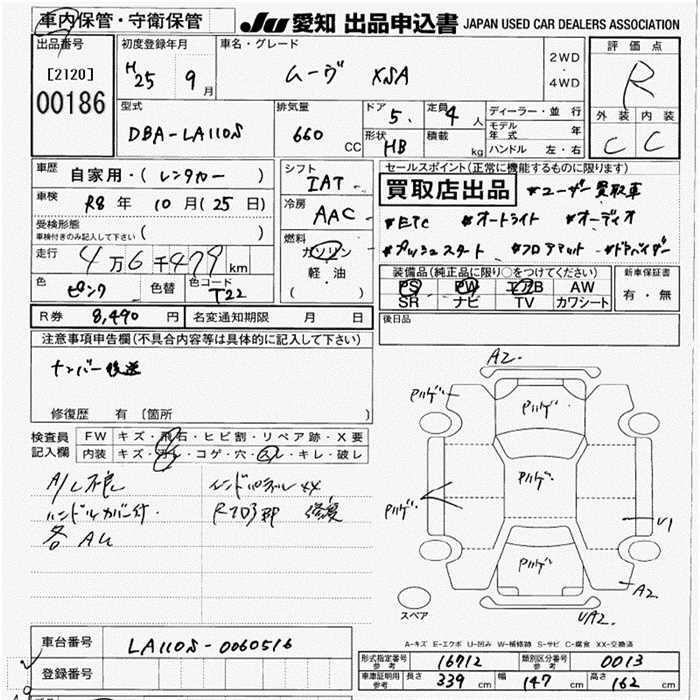 車内保管・守衛保管
JU 愛知 出品申込書 JAPAN USED CAR DEALERS ASSOCIATION
出品番号
[2120]
00186
初度登録年月
H25 9月
車名・グレード
ムーヴ XSA
2WD・4WD
評価点
R
外装 内装
C C
型式
DBA-LA110S
排気量
660 CC
ドア 5.
定員 4人
形状 HB
積載 kg
ディーラー・並行
モデル年式 年
ハンドル 左・右
車歴
自家用・(レンタカー)
車検
R8年 10月(25日)
受検形態
車検付きのみ記入して下さい ( )
走行
4万6千479km
色
ピンク
色替
色コード
T22
シフト
IAT
冷房
AAC
燃料
ガソリン
軽・油
( )
セールスポイント(正常に機能するものに限ります)
買取店出品 #ユーザー買取車
#ETC #オートライト #オーディオ
#プッシュスタート #フロアマット #ドアバイザー
装備品(純正品に限り○をつけてください)
PS PW エアB AW
SR ナビ TV カワシート
新車保証書
有・無
R券 8,490円
名変通知期限 月 日
後日品
注意事項申告欄(不具合内容等は具体的に記入して下さい)
ナンバー後送
修復歴 有 (箇所 )
検査員記入欄
FW キズ・飛石・ヒビ割・リペア跡・X要
内装 キズ・汚レ・コゲ・穴・スレ・キレ・破レ
A/L不良
ハンドルカバー付.
各AU
A2
ハガ
ハガ
ハガ
ハガ
ハガ
U1
A2
UA2
スペア
A-キズ E-エクボ U-凹み W-補修跡 S-サビ C-腐食 XX-交換済
車台番号
LA110S-0060516
登録番号
形式指定番号 参考 16712
類別区分番号 参考 0013
車庫証明用 参考 長さ 339cm 幅 147cm 高さ 162cm